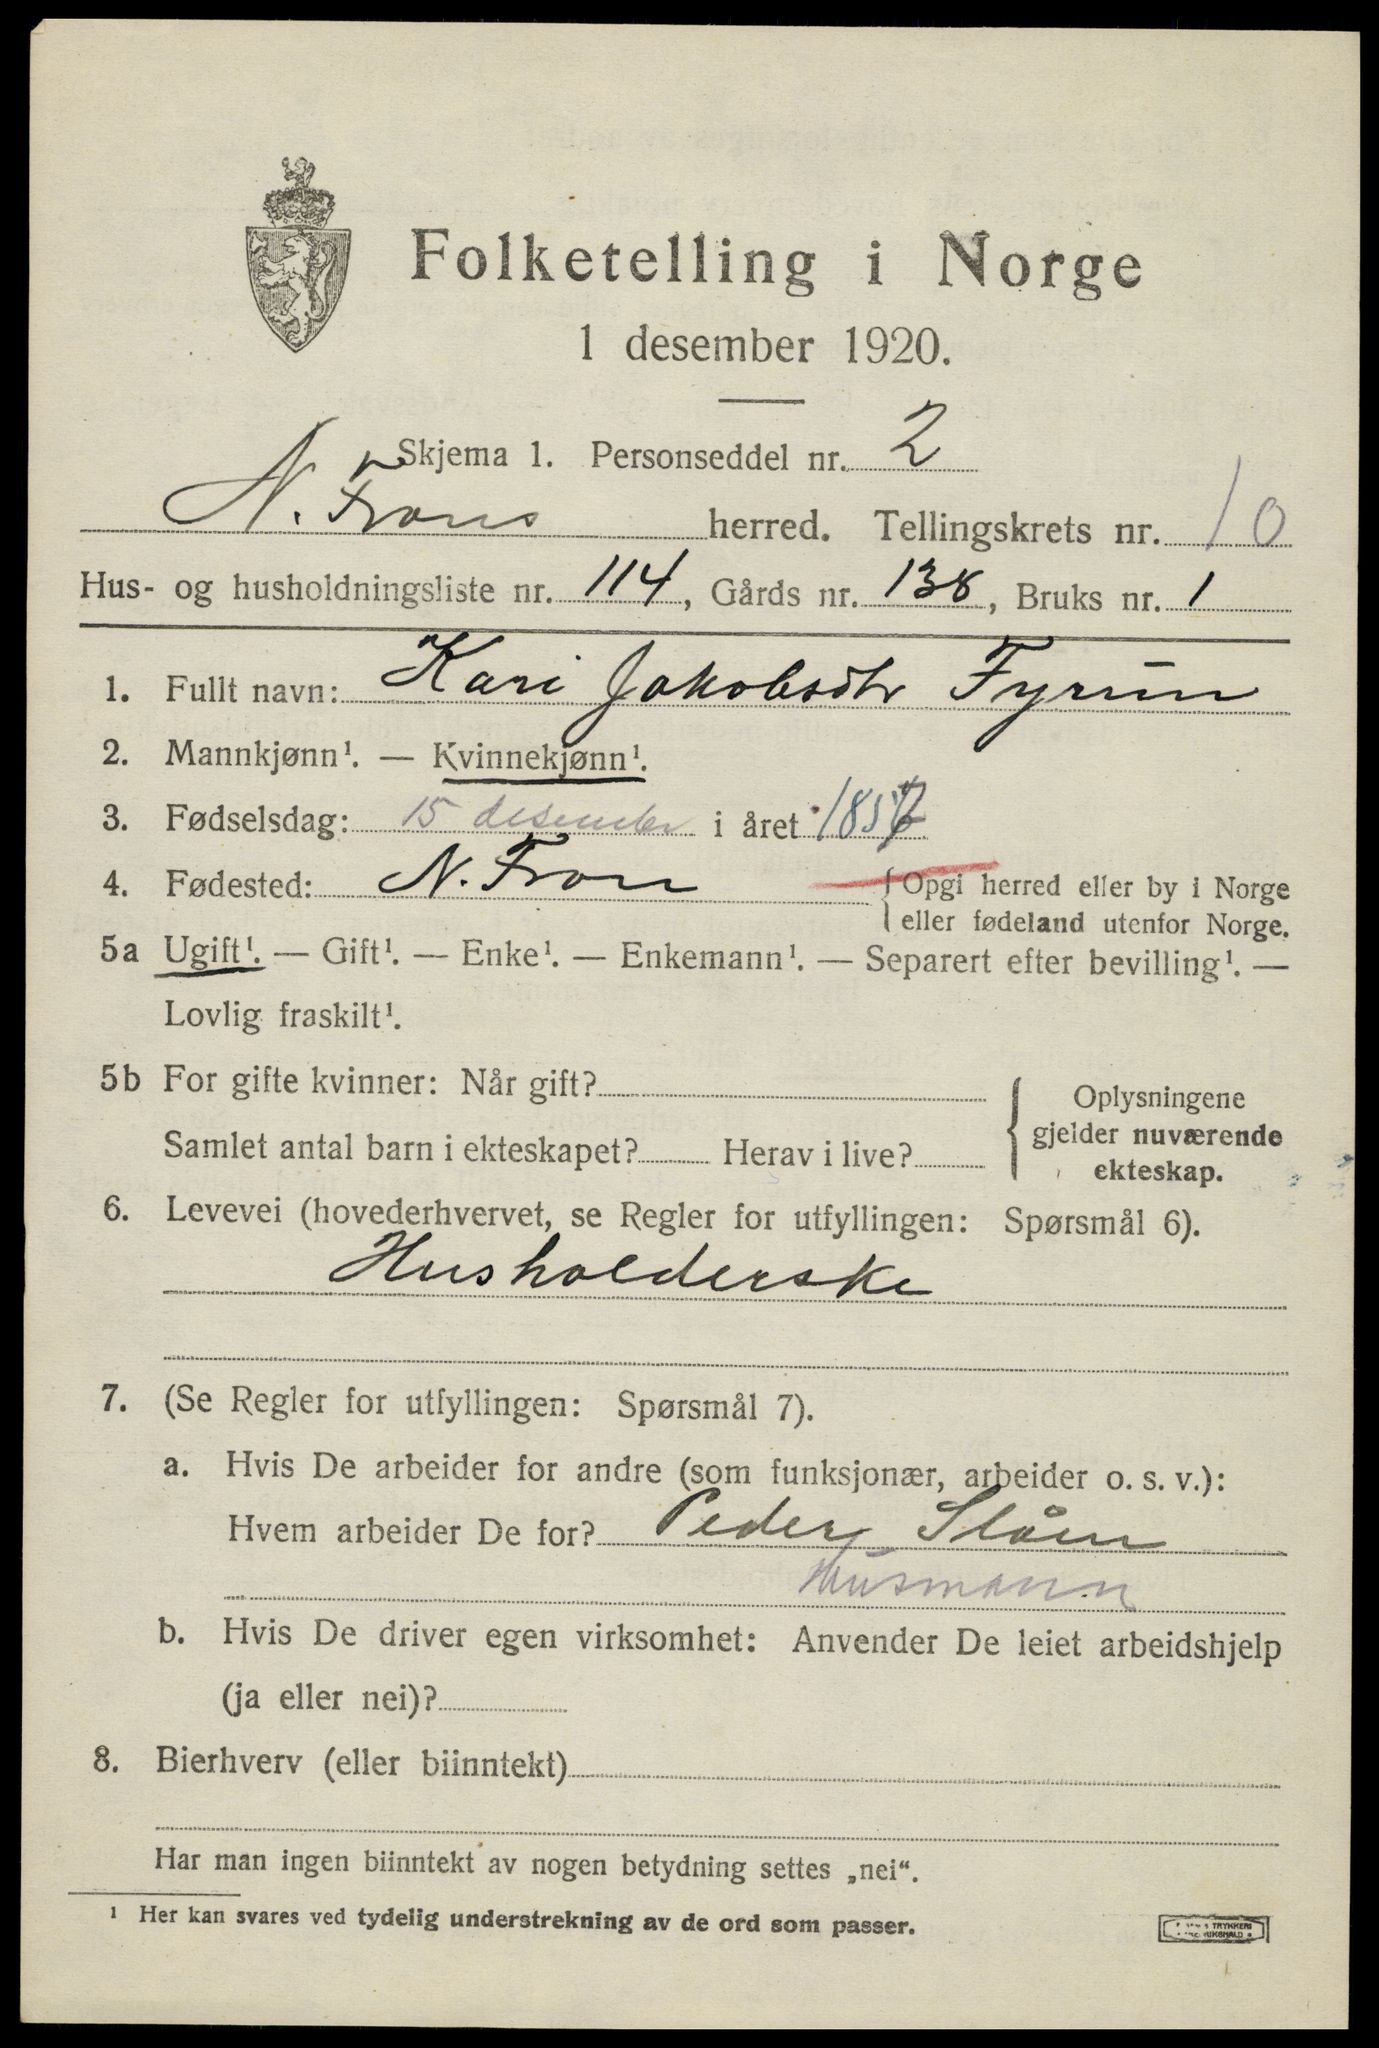 Folketelling i Norge
1 desember 1920.
Skjema 1. Personseddel nr. 2
N. Frons herred. Tellingskrets nr. 10
Hus- og husholdningsliste nr. 114, Gårds nr. 138, Bruks nr. 1
1. Fullt navn: Kari Jakobsdtr
2. Mannkjønn¹. — Kvinnekjønn¹.
3. Fødselsdag: 15 desember i året 1857
4. Fødested: N. Fron { Opgi herred eller by i Norge
eller fødeland utenfor Norge.
5a Ugift¹. — Gift¹. — Enke¹. — Enkemann¹. — Separert efter bevilling¹. —
Lovlig fraskilt¹.
5b For gifte kvinner: Når gift?
Samlet antal barn i ekteskapet? Herav i live?
Oplysningene
gjelder nuværende
ekteskap.
6. Levevei (hovederhvervet, se Regler for utfyllingen: Spørsmål 6).
Husholderske
7. (Se Regler for utfyllingen: Spørsmål 7).
a. Hvis De arbeider for andre (som funksjonær, arbeider o. s. v.):
Hvem arbeider De for? Peder Slåen
Husmann
b. Hvis De driver egen virksomhet: Anvender De leiet arbeidshjelp
(ja eller nei)?
8. Bierhverv (eller biinntekt)
Har man ingen biinntekt av nogen betydning settes „nei“.
¹ Her kan svares ved tydelig understrekning av de ord som passer.